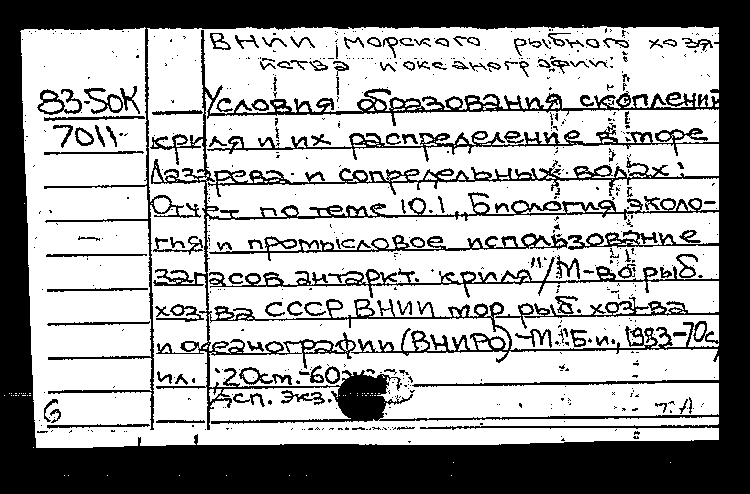 ВНИИ морского рыбного хозя-
йства и океанографии.
83-5ОК Условия образования скоплений
7011 криля и их распределение в море
Лазарева и сопредельных водах:
Отчет по теме 10.1 „Биология, эколо-
гия и промысловое использование
запасов антаркт. криля"/М-во рыб.
хоз-ва СССР, ВНИИ мор. рыб. хоз-ва
и океанографии (ВНИРО)-М.:Б.и., 1983-70с.,
ил. ; 20см.-60
экз.
6 т.А